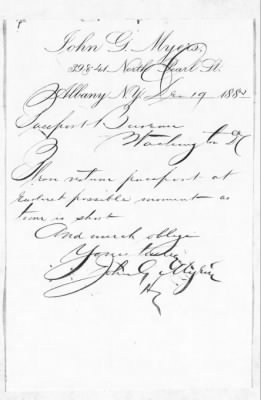 John G. Myers,
39 & 41 North Pearl St.
Albany, N.Y. Dec 19 188
Passport Bureau
Washington DC
return passport at
Earliest possible moment as
time is short
And much oblige
Yours truly
John G Myers